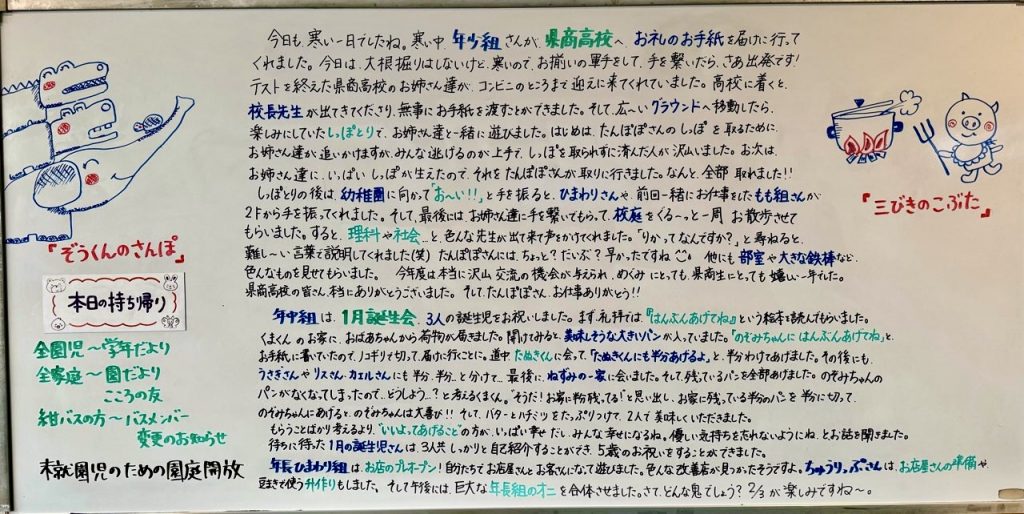 今日も、寒い一日でしたね。寒い中、年少組さんが、県商高校へ、お礼のお手紙を届けに行って
くれました。今日は、大根掘りはしないけど、寒いので、お揃いの軍手をして、手を繋いだら、さあ出発です！
テストを終えた県商高校のお姉さん達が、コンビニのところまで迎えに来てくれていました。高校に着くと、
校長先生が出てきてくださり、無事にお手紙を渡すことができました。そして、広〜いグラウンドへ移動したら、
楽しみにしていたしっぽとりで、お姉さん達と一緒に遊びました。はじめは、たんぽぽさんのしっぽを取るために、
お姉さん達が追いかけますが、みんな逃げるのが上手で、しっぽを取られずに済んだ人が沢山いました。お次は、
お姉さん達に、いっぱいしっぽが生えたので、それをたんぽぽさんが取りに行きました。なんと、全部取れました!!
しっぽとりの後は、幼稚園に向かって「お〜い!!」と手を振ると、ひまわりさんや、前回一緒にお仕事をしたもも組さんが
2Fから手を振ってくれました。そして、最後にはお姉さん達に手を繋いでもらって、校庭をぐる〜っと一周お散歩させて
もらいました。すると、理科や社会…と、色んな先生が出て来て声をかけてくれました。「りかってなんですか？」と尋ねると、
難し〜い言葉で説明してくれました(笑) たんぽぽさんには、ちょっと？だいぶ？早かったですね 他にも部室や大きな鉄棒など、
色んなものを見せてもらいました。 今年度は本当に沢山交流の機会が与えられ、めぐみにとっても、県商生にとっても嬉しい一年でした。
県商高校の皆さん、本当にありがとうございました。そして、たんぽぽさん、お仕事ありがとう!!
年中組は、1月誕生会。3人の誕生児をお祝いしました。まず、礼拝では『はんぶんあげてね』という絵本を読んでもらいました。
くまくんのお家に、おばあちゃんから荷物が届きました。開けてみると、美味しそうな大きいパンが入っていました。「のぞみちゃんにはんぶんあげてね」と、
お手紙に書いていたので、ノコギリで切って、届けに行くことに。道中、たぬきくんに会って、「たぬきくんにも半分あげるよ」と、半分わけてあげました。その後にも、
うさぎさんやリスさん、カエルさんにも半分、半分…と分けて…最後に、ねずみの一家に会いました。そして、残っているパンを全部あげました。のぞみちゃんの
パンがなくなってしまったので、…どうしよう…？と考えるくまくん。"そうだ！お家に半分残ってる！"と思い出し、お家に残っている半分のパンを半分に切って、
のぞみちゃんにあげると、のぞみちゃんは大喜び!! そして、バターとハチミツをたっぷりつけて、2人で美味しくいただきました。
もらうことばかり考えるより、"いいよってあげること"の方が、いっぱい幸せだし、みんな幸せになるね。優しい気持ちを忘れないようにね、とお話を聞きました。
待ちに待った1月の誕生児さんは、3人共しっかりと自己紹介することができ、5歳のお祝いをすることができました。
年長ひまわり組は、お店のプレオープン！自分たちでお店屋さんとお客さんになって遊びました。色んな改善店が見つかったそうですよ。ちゅうりっぷさんは、お店屋さんの準備や、
豆まきで使う升作りもしました。そして午後には、巨大な年長組のオニを合体させました。さて、どんな鬼でしょう？2/3が楽しみですね〜。
「ぞうくんのさんぽ」
「三びきのこぶた」
本日の持ち帰り
全園児〜学年だより
全家庭〜園だより
こころの友
紺バスの方〜バスメンバー
変更のお知らせ
未就園児のための園庭開放